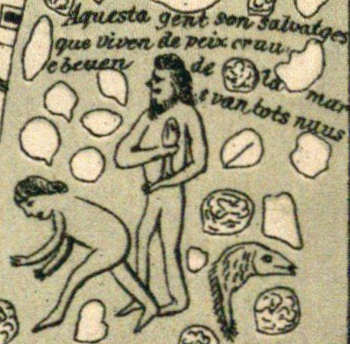 Aquesta gent son salvatges
que viven de peix cruu
e beuen de la mar
e van tots nuus